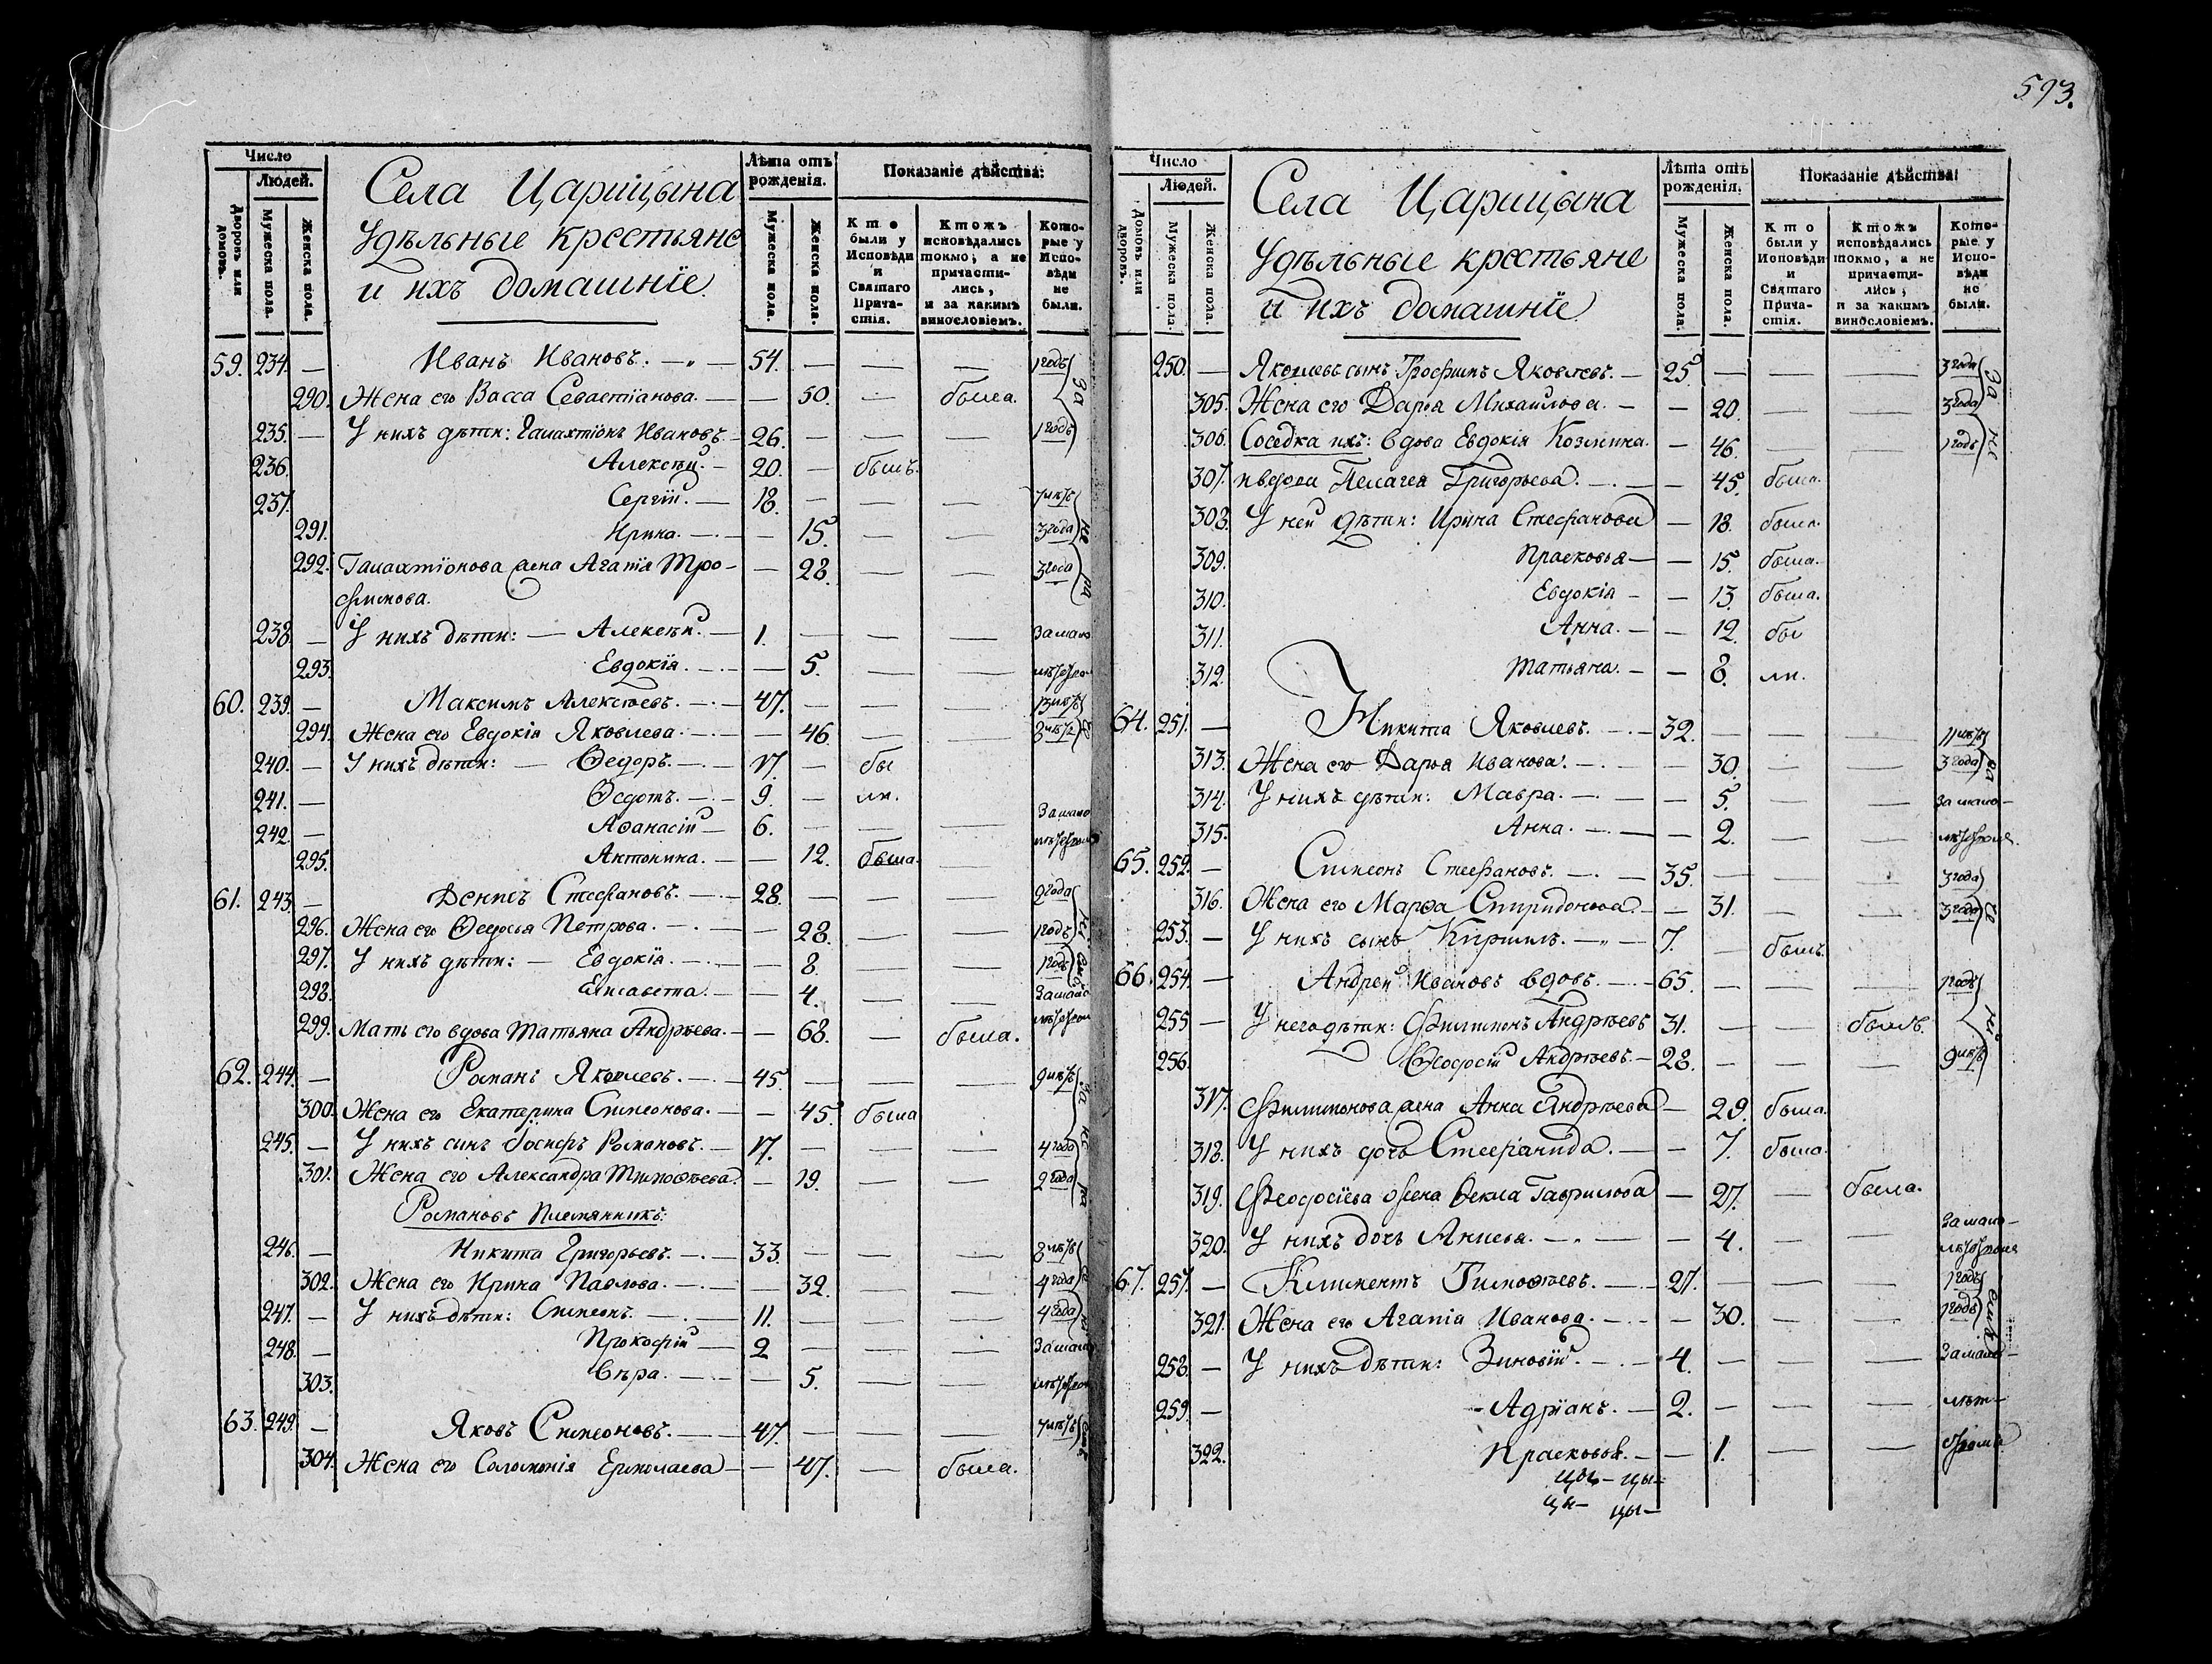 593.
Число
Людей.
Дворовъ или домовъ.
Мужеска пола.
Женска пола.
Села Царицына
Удѣльные крестьяне
и ихъ домашнїе.
Лѣта отъ рожденія.
Мужеска пола.
Женска пола.
Показаніе дѣйства:
Кто были у Исповѣди и Святаго Прича-стія.
Ктожъ исповѣдались токмо, а не причасти-лись, и за какимъ винословіемъ.
Кото-рые у Испо-вѣди не были.
59. 234. — Иванъ Ивановъ. — 54. — — — 1 годъ
290. Жена его Васса Севастїанова. — — 50. — была.
235. — У нихъ дѣти: Галахтїонъ Ивановъ — 26. — — — 1 годъ
236. Алексѣй. — 20. — былъ.
237. Сергїй. — 18. — — — 7 лѣтъ
291. Ирина. — — 15. — — 3 года
292. Галахтїонова жена Агапїа Тро- — 28. — — 3 года
фимова.
238. — У нихъ дѣти: — Алексѣй. — 1. — — — за мало
293. Евдокїя. — — 5. — —
60. 239. — Максимъ Алексѣевъ. — 47. — — — 13 лѣтъ
294. Жена его Евдокія Яковлева. — — 46. — —
240. — У нихъ дѣти: — Ѳедоръ. — 17. — бы
241. — Ѳедотъ. — 9. — ли.
242. — Аѳанасій — 6. — — — За мало
295. Антонина. — — 12. была. —
61. 243. — Денисъ Стефановъ. — 28. — — — 2 года
296. Жена его Ѳедосья Петрова. — — 28. — — 1 годъ
297. У нихъ дѣти: — Евдокїя. — — 8. — — 1 годъ
298. Елисавета. — — 4. — — За мало
299. Мать его вдова Татьяна Андрѣева. — — 68. — была.
62. 244. — Романъ Яковлевъ. — 45. — — — 9 лѣтъ
300. Жена его Екатерина Симеонова. — — 45. была
245. — У нихъ сынъ Іосифъ Романовъ. — 17. — — — 4 года
301. Жена его Александра Тимоѳѣева. — 19. — — 2 года
Романовъ племянникъ:
246. — Никита Григорьевъ. — 33. — — — 8 лѣтъ
302. Жена его Ирина Павлова. — — 32. — — 4 года
247. — У нихъ дѣти: Симеонъ. — 11. — — — 4 года
248. — Прокофій — 2 — — — За мало
303. Вѣра. — — 5. — —
63. 249. — Яковъ Симеоновъ. — 47. — — — 7 лѣтъ
304. Жена его Соломонія Ермолаева — — 47. — была.
Число
Людей.
Домовъ или дворовъ.
Мужеска пола.
Женска пола.
Села Царицына
Удѣльные крестьяне
и ихъ домашнїе
Лѣта отъ рожденія.
Мужеска пола.
Женска пола.
Показаніе дѣйства:
Кто были у Исповѣди и Святаго Прича-стія.
Ктожъ исповѣдались токмо, а не причасти-лись, и за какимъ винословіемъ.
Кото-рые у Испо-вѣди не были.
250. — Яковлевъ сынъ Трофимъ Яковлевъ. — 25 — — — 3 года
305. Жена его Дарья Михайлова. — — 20. — — 3 года
306. Соседка ихъ: вдова Евдокія Козмина. — 46. — — 1 годъ
307. и вдова Пелагея Григорьева. — — 45. была.
308. У ней дѣти: Ирина Стефанова — 18. была.
309. Прасковья — — 15. была.
310. Евдокія — — 13. была.
311. Анна. — — 12. бы
312. Татьяна. — — 8. ли.
64. 251. — Никита Яковлевъ. — 32. — — — 11 лѣтъ
313. Жена его Дарья Иванова. — — 30. — — 3 года
314. У нихъ дѣти: Мавра. — — 5. — — За мало-
315. Анна. — — 2. — —
65. 252. — Симеонъ Стефановъ. — 35. — — — 3 года
316. Жена его Марѳа Спиридонова. — — 31. — — 3 года
253. — У нихъ сынъ Кирилъ. — 7. — былъ.
66. 254. — Андрей Ивановъ вдовъ. — 65. — — — 1 годъ
255 — У него дѣти: Филимонъ Андрѣевъ 31. — — былъ.
256. Ѳеофосій Андрѣевъ. — 28. — — — 9 лѣтъ
317. Филимонова жена Анна Андрѣева — 29. была.
318. У нихъ дочь Стефанида. — — 7. была.
319. жена Ѳекла Гаврилова — 27. — была.
320. У нихъ дочь — — 4. — — За мало-
67. 257. — Климентъ Тимоѳѣевъ. — 27. — — — 1 годъ
321. Жена его Агапіа Иванова. — — 30. — — 1 годъ
258. — У нихъ дѣти: Зиновїй. — 4. — — — За мало-
259. — Адрїанъ. — 2. — — — лѣт-
322. Прасковья. — — 1. — —
цы- цы-
цы- цы-